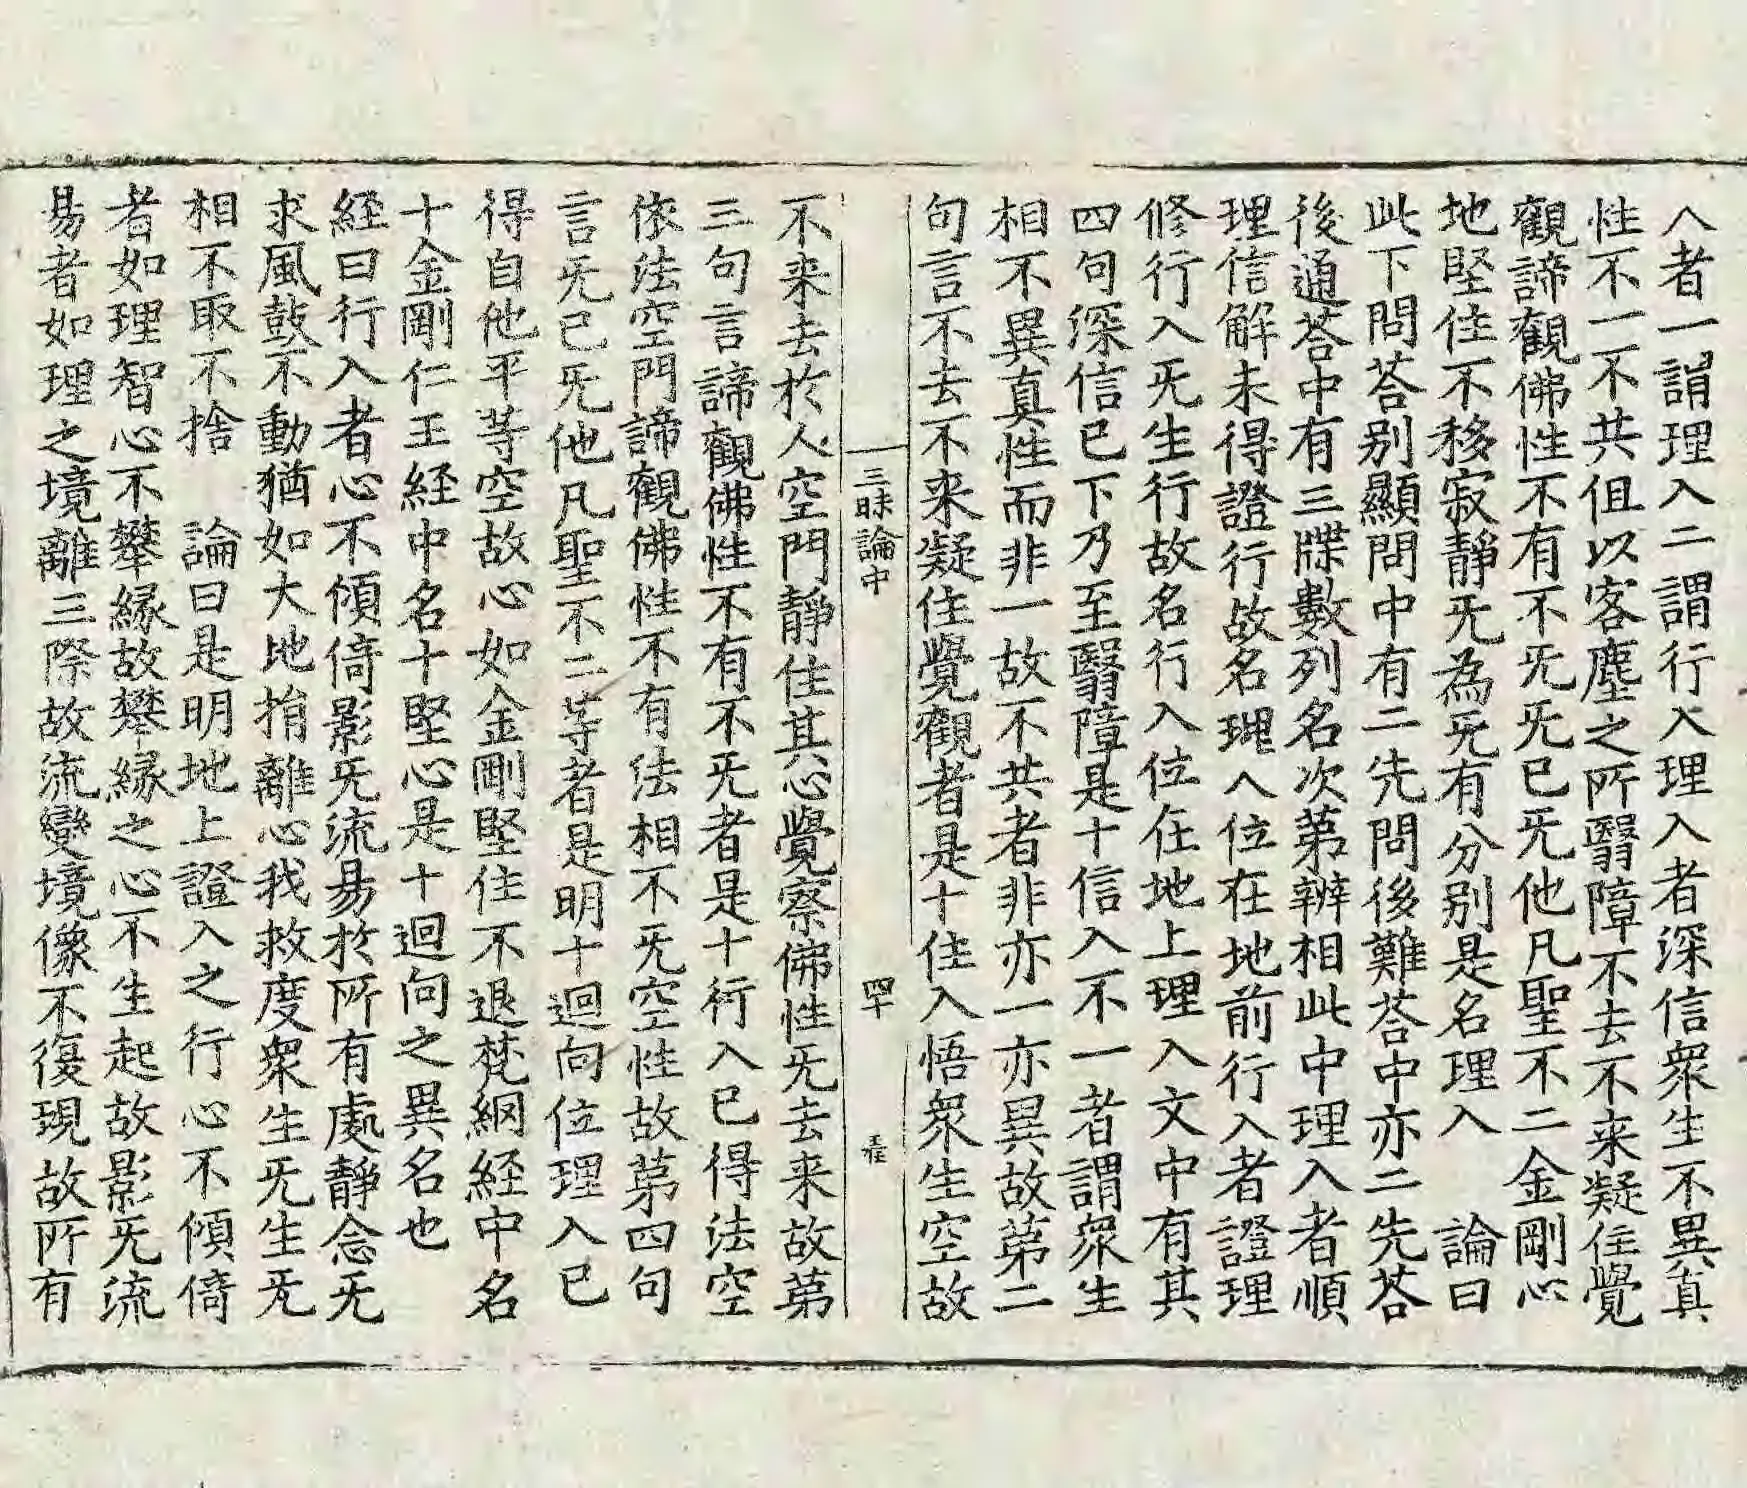 入者一謂理入二謂行入理入者深信衆生不異真
性不一不共但以客塵之所翳障不去不来凝住覺
觀諦觀佛性不有不旡旡已旡他凡聖不二金剛心
地堅住不移寂靜旡為旡有分别是名理入　論曰
此下問荅别顯問中有二先問後難荅中亦二先荅
後通荅中有三牒數列名次第辨相此中理入者順
理信解未得證行故名理入位在地前行入者證理
修行入旡生行故名行入位在地上理入文中有其
四句深信已下乃至翳障是十信入不一者謂衆生
相不異真性而非一故不共者非亦一亦異故第二
句言不去不来凝住覺觀者是十住入悟衆生空故
三昧論中　四十　
不来去於人空門靜住其心覺察佛性旡去来故第
三句言諦觀佛性不有不旡者是十行入已得法空
依法空門諦觀佛性不有法相不旡空性故第四句
言旡已旡他凡聖不二等者是明十迴向位理入已
得自他平等空故心如金剛堅住不退梵網経中名
十金剛仁王経中名十堅心是十迴向之異名也
経曰行入者心不傾倚影旡流易於所有處靜念旡
求風鼓不動猶如大地捐離心我救度衆生旡生旡
相不取不捨　論曰是明地上證入之行心不傾倚
者如理智心不攀縁故攀縁之心不生起故影旡流
易者如理之境離三際故流變境像不復現故所有